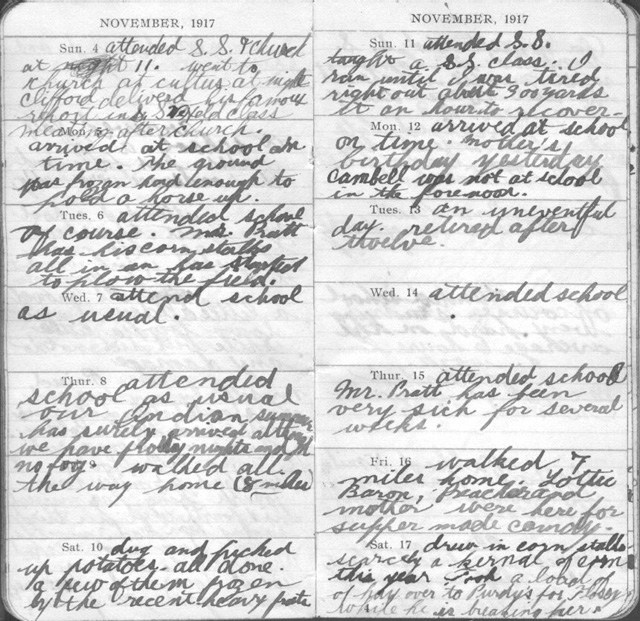 NOVEMBER, 1917
Sun. 4 attended S. S. & church
at night 11. went to
church at cultus at night
Clifford delivered his famous
class
Mon. 5 after church.
arrived at school on
time. The ground
was frozen hard enough to
hold a horse up.
Tues. 6 attended school
of course. Mr. Pratt
has his corn stalks
all in an has started
to plow the field.
Wed. 7 attend school
as usual.
Thur. 8 attended
school as usual
our Indian summer
has surely arrived altho
we have frosty nights and
no fog 9 walked all
the way home (8 miles)
Sat. 10 dug and picked
up potatoes all done.
a few of them frozen
by the recent heavy frosts
NOVEMBER, 1917
Sun. 11 attended S.S.
taught a S.S. class. I
ran until I was tired
right out about 300 yards
it an hour to recover.
Mon. 12 arrived at school
on time. Mother's
birthday yesterday
Cambell was not at school
in the forenoon.
Tues. 13 an uneventful
day. retired after
twelve.
Wed. 14 attended school
.
Thur. 15 attended school
Mr. Pratt has been
very sick for several
weeks.
Fri. 16 walked 7
miles home. Lottie
Baron, Preacher and
mother were here for
supper made candy.
Sat. 17 drew in corn stalks
scarcely a kernal of corn
this year Took a load of
hay over to Purdy's for Flossy
while he is breaking her.